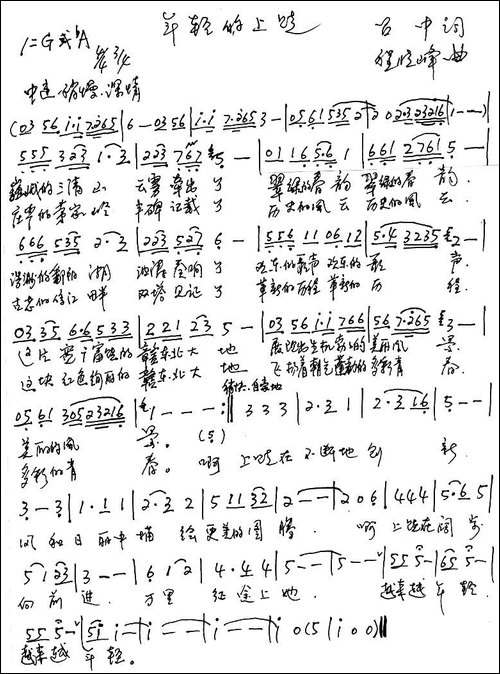 年轻的上饶
中词
1=G或♭A 4/4 3/4
曲
中速 稍慢 深情
(03 56 i·i 7265|6 — 03 56|i·i 7·265 3 —|0561 535 2 —|2 02323216|1 — —)
555 323 1·3|223 767 5 —|01 165·6 1|661 2761 5 —
巍峨的三清山 云雾牵出了 翠绿的春韵 翠绿的春韵.
庄重的茅家岭 丰碑记载了 历史的风云 历史的风云.
666 535 2·3|223 527 6 —|556 11 06 12|5·4 3235 2 —|
的鄱阳湖 波浪奏响了 欢乐的歌声 欢乐的歌声.
信江畔 双塔见证了 革新的历程 革新的历程.
03 35 6·6 533|221 23 5 —|03 56 i·i 766|56 7·265 3 —|
这片富饶的赣东北大地 展现出生机的美丽风景
这块红色绚丽的赣东北大地 飞扬着朝气蓬勃的多彩青春.
稍快 自豪地
0561 30523216|1 — — —:‖333|2·31|2·316|5 — —|
美丽的风景。(5) 啊 上饶在不断地创新
多彩的青春。
3 — 3|1·11|2·32|51132|2 — —|206|444|5·65|
风和日丽中描绘更美的图腾. 啊 上饶在阔步
5123|3 — —|612|4·44|5 — —|5 — —|555 —|655 —|
向前进. 万里征途上她. 越来越年轻.
555 —|5i i —|i — —|i — —|i 0(5|i00)‖
越来越年轻。